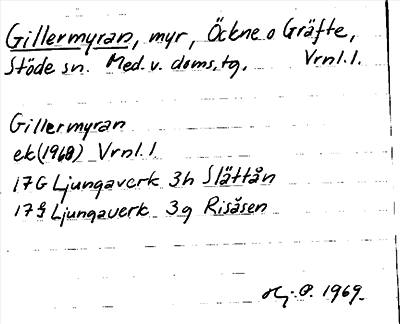 Gillermyran, myr, Öckne o Gräfte,
Stöde sn. Med. v. doms.tg. Vrnl.1.
Gillermyran
ek (1968) Vrnl.1
17G Ljungaverk 3h Slättån
17G Ljungaverk 3g Risåsen
Hj. P. 1969.